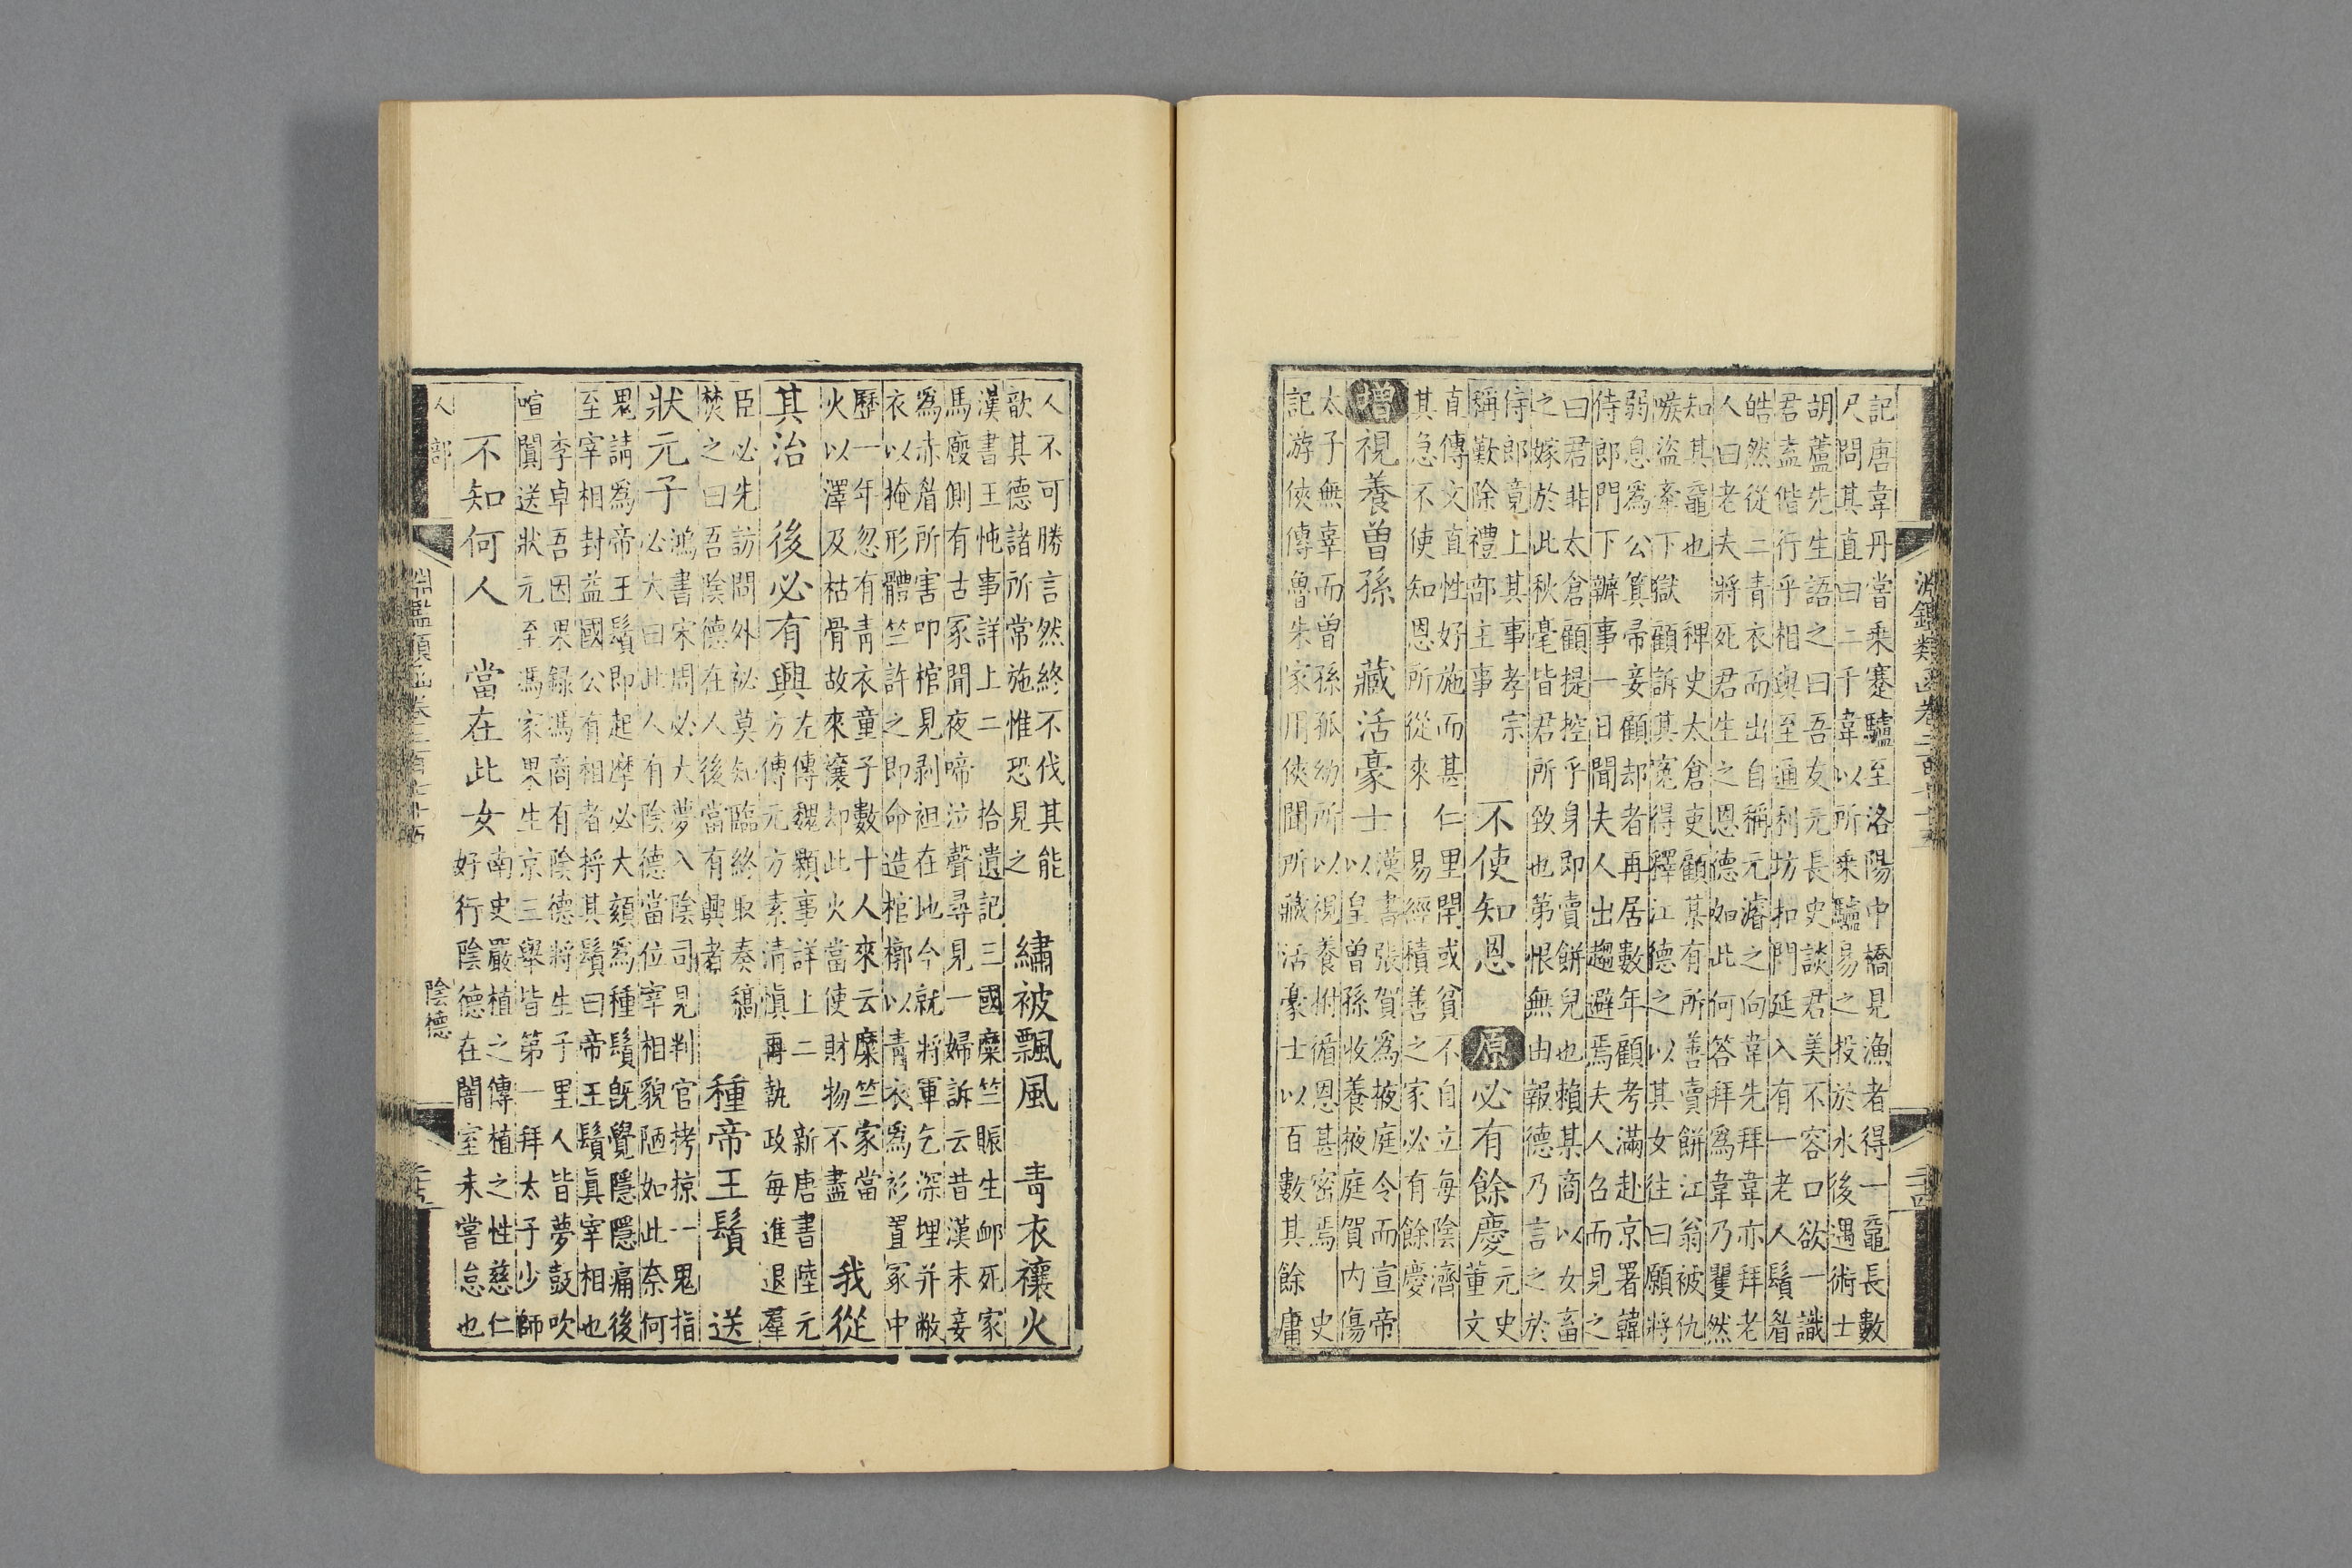 淵鑑類函卷二百七十五 二十四
記唐韋丹嘗乘蹇驢至洛陽中橋見漁者得一黿長數
尺問其直曰二千韋以所乘驢易之投於水後遇術士
胡蘆先生語之曰吾友元長史談君美不容口欲一識
君盍偕行乎相與至通利坊扣門延入有一老人鬚眉
皓然從二青衣而出自稱元濬之向韋先拜韋亦拜老
人曰老夫將死君生之恩德如此何答拜爲韋乃矍然
知其黿也 稗史太倉吏顧某有所善賣餅江翁被仇
嗾盜牽下獄顧訴其寃得釋江德之以其女往曰願將
弱息爲公箕帚妾顧却者再居數年顧考滿赴京署韓
侍郎門下辦事一日聞夫人出趨避焉夫人召而見之
曰君非太倉顧提控乎身即賣餅兒也賴某商以女畜
之嫁於此秋毫皆君所致也第恨無由報德乃言之於
侍郎竟上其事孝宗
稱歎除禮部主事
不使知恩 原 必有餘慶
元史
董文
直傳文直性好施而甚仁里閈或貧不自立每陰濟
其急不使知恩所從來 易經積善之家必有餘慶
增 視養曾孫 藏活豪士
漢書張賀爲掖庭令而宣帝
以皇曾孫收養掖庭賀内傷
太子無辜而曾孫孤幼所以視養拊循恩甚密焉 史
記游俠傳魯朱家用俠聞所藏活豪士以百數其餘庸
人不可勝言然終不伐其能
歆其德諸所常施惟恐見之
繡被飄風 青衣禳火
漢書王忳事詳上二 拾遺記三國糜竺賑生卹死家
馬廏側有古冢聞夜啼泣聲尋見一婦訴云昔漢末妾
爲赤眉所害叩棺見剥袒在地今就將軍乞深埋并敝
衣以掩形體竺許之即命造棺槨以青衣爲衫置冢中
歷一年忽有青衣童子數十人來云糜竺家當
火以澤及枯骨故來禳却此火當使財物不盡
我從
其治 後必有興
左傳魏顆事詳上二 新唐書陸元
方傳元方素清愼再執政每進退羣
臣必先訪問外祕莫知臨終取奏稿
焚之曰吾陰德在人後當有興者
種帝王鬚 送
狀元子
鴻書宋周必大夢入陰司見判官拷掠一鬼指
必大曰此人有陰德當位宰相貌陋如此奈何
鬼請爲帝王鬚即起摩必大頦爲種鬚旣覺隱隱痛後
至宰相封益國公有相者捋其鬚曰帝王鬚眞宰相也
李卓吾因果録馮商有陰德將生子里人皆夢鼓吹
喧闐送狀元至馮家果生京三舉皆第一拜太子少師
不知何人 當在此女
南史嚴植之傳植之性慈仁
好行陰德在闇室未嘗怠也
人部 淵鑑類函卷二百七十五 陰德 二十五